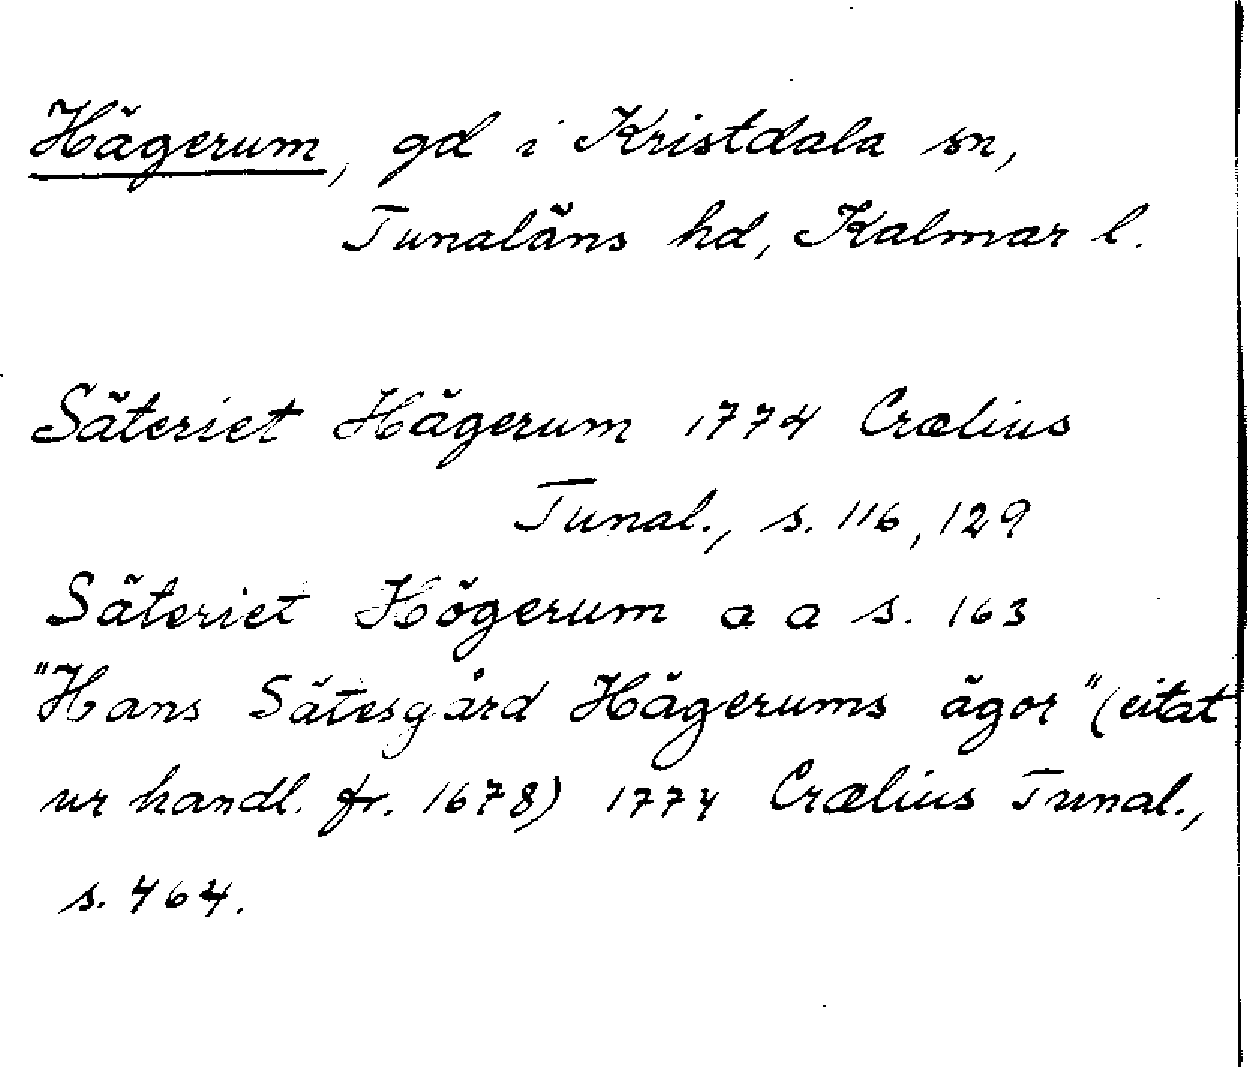 Hägerum, gd i Kristdala sn,
Tunaläns hd, Kalmar l.
Säteriet Hägerum 1774 Crælius
Tunal., s. 116, 129
Säteriet Högerum a a s. 163
"Hans Sätesgård Hägerums ägor" (citat
ur handl. fr. 1678) 1774 Crælius Tunal.,
s. 464.